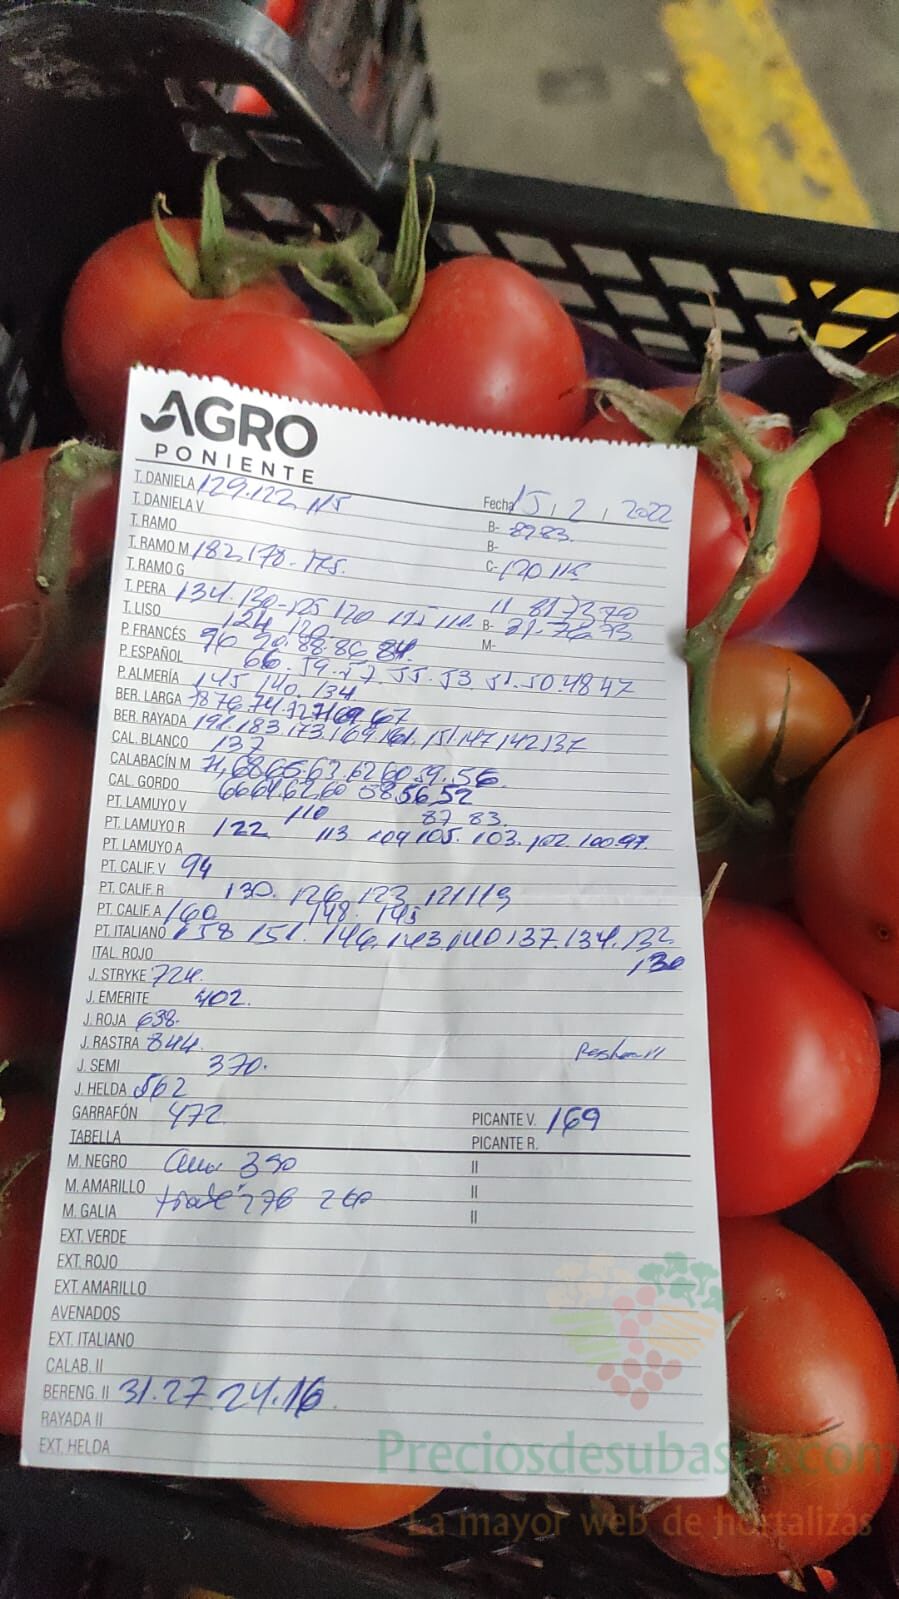 AGRO
PONIENTE
T. DANIELA 129.122 115 Fecha 15 / 2 / 2022
T. DANIELA V B- 8783.
T. RAMO B-
T. RAMO M 182, 178. 175. C- 120 115
T. RAMO G
T. PERA 134. 130-125 120 115 110 II 81 72 70
T. LISO 124 120 B- 81. 76 73
P. FRANCÉS 96 90. 88. 86 84. M-
P. ESPAÑOL 66. 59. 57. 55. 53 51. 50. 48 47
P. ALMERÍA 145 140. 134
BER. LARGA 78 76 74 72 71 69 67
BER. RAYADA 191, 183. 173, 169 161. 151 147 142 137
CAL. BLANCO 137
CALABACÍN M 71, 68 65. 63. 62 60 59. 56.
CAL. GORDO 66 64. 62. 60 58 56, 52
PT. LAMUYO V 110 87 83.
PT. LAMUYO R 122 113 109 105. 103. 102 100 97.
PT. LAMUYO A
PT. CALIF. V 94
PT. CALIF. R 130. 126 123 121 119
PT. CALIF. A 160 148. 145
PT. ITALIANO 158 151. 146. 143, 140 137. 134. 132
ITAL. ROJO 130
J. STRYKE 724.
J. EMERITE 402.
J. ROJA 638.
J. RASTRA 844.
J. SEMI 370.
J. HELDA 562
GARRAFÓN 472 PICANTE V. 169
TABELLA PICANTE R.
M. NEGRO 390 II
M. AMARILLO 276 260 II
M. GALIA II
EXT. VERDE
EXT. ROJO
EXT. AMARILLO
AVENADOS
EXT. ITALIANO
CALAB. II
BERENG. II 31. 27 24. 16.
RAYADA II
EXT. HELDA
Preciosdesubasta.com
La mayor web de hortalizas